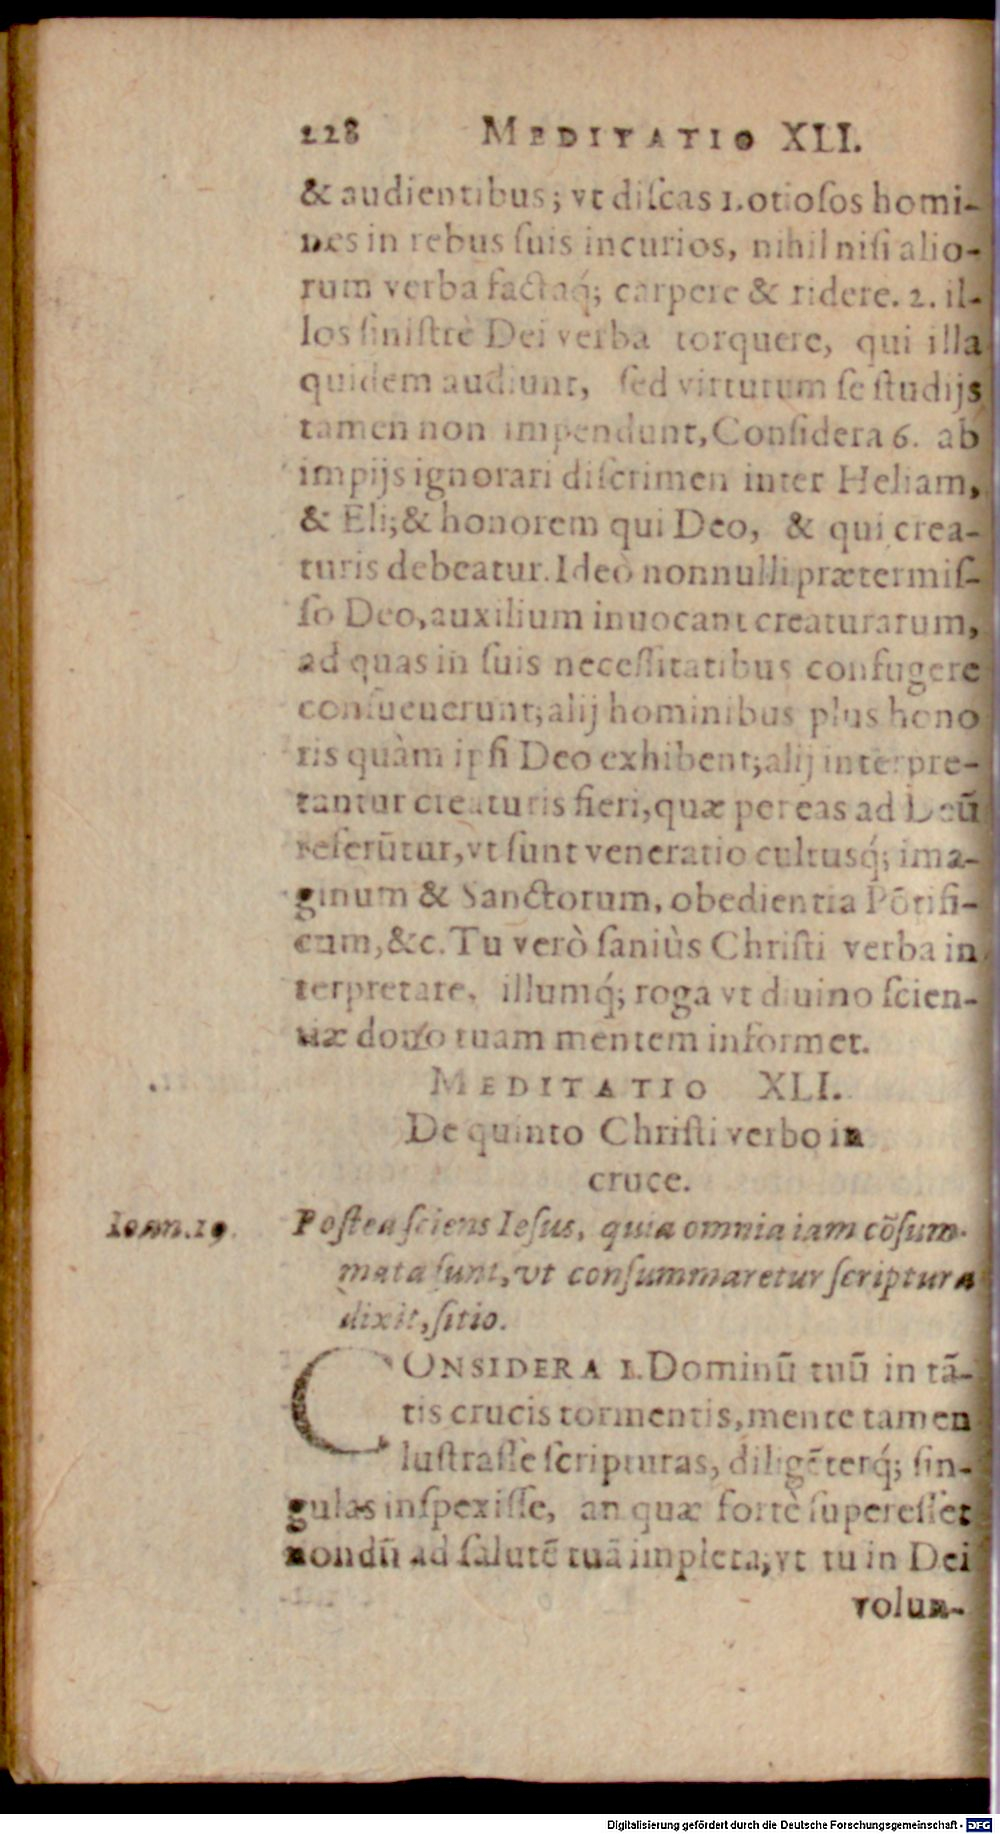 228 MEDITATIO XLI.
& audientibus; vt diſcas 1. otioſos homi-
nes in rebus ſuis incurios, nihil niſi alio-
rum verba factaq́; carpere & ridere. 2. il-
los ſiniſtrè Dei verba torquere, qui illa
quidem audiunt, ſed virtutum ſe ſtudijs
tamen non impendunt, Conſidera 6. ab
impijs ignorari diſcrimen inter Heliam,
& Eli; & honorem qui Deo, & qui crea-
turis debeatur. Ideò nonnulli prætermiſ-
ſo Deo, auxilium inuocant creaturarum,
ad quas in ſuis neceſſitatibus confugere
conſueuerunt; alij hominibus plus hono
ris quàm ipſi Deo exhibent; alij interpre-
tantur creaturis fieri, quæ per eas ad Deū
referūtur, vt ſunt veneratio cultusq́; ima-
ginum & Sanctorum, obedientia Pōtifi-
cum, &c. Tu verò ſaniùs Chriſti verba in
terpretare, illumq́; roga vt diuino ſcien-
tiæ dono tuam mentem informet.
MEDITATIO XLI.
De quinto Chriſti verbo in
cruce.
Ioan. 19. Poſtea ſciens Ieſus, quia omnia iam cōſum-
mata ſunt, vt conſummaretur ſcriptura
dixit, ſitio.
CONSIDERA 1. Dominū tuū in tā-
tis crucis tormentis, mente tamen
luſtraſſe ſcripturas, diligēterq́; ſin-
gulas inſpexiſſe, an quæ fortè ſupereſſet
nondū ad ſalutē tuā impleta, vt tu in Dei
volun-
Digitalisierung gefördert durch die Deutsche Forschungsgemeinschaft - DFG